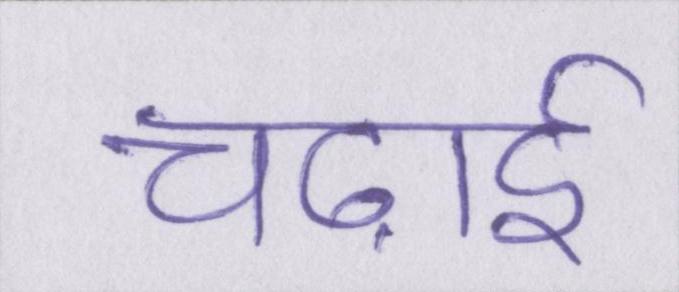 चढ़ाई